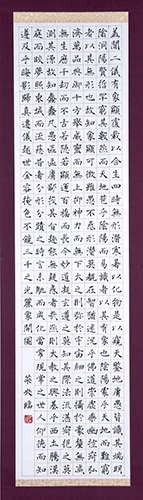 蓋聞二儀有象顯覆載以含生四時無形潛寒暑以化物是以窺天鑒地庸愚皆識其端明
陰洞陽賢哲罕窮其數然而天地苞乎陰陽而易識者以其有象也陰陽處乎天地而難窮
者以其無形也故知象顯可徵雖愚不惑形潛莫覩在智猶迷況乎佛道崇虛乘幽控寂弘
濟萬品典御十方舉威靈而無上抑神力而無下大之則彌於宇宙細之則攝於毫釐無滅
無生歷千劫而不古若隱若顯運百福而長今妙道凝玄遵之莫知其際法流湛寂挹之莫測
其源故知蠢蠢凡愚區區庸鄙投其旨趣能無疑惑者哉然則大教之興基乎西土騰漢
庭而皎夢照東域而流慈昔者分形分跡之時言未馳而成化當常現常之世人仰德而知
遵及乎晦影歸真遷儀越世金容掩色不鏡三千之光麗象開圖